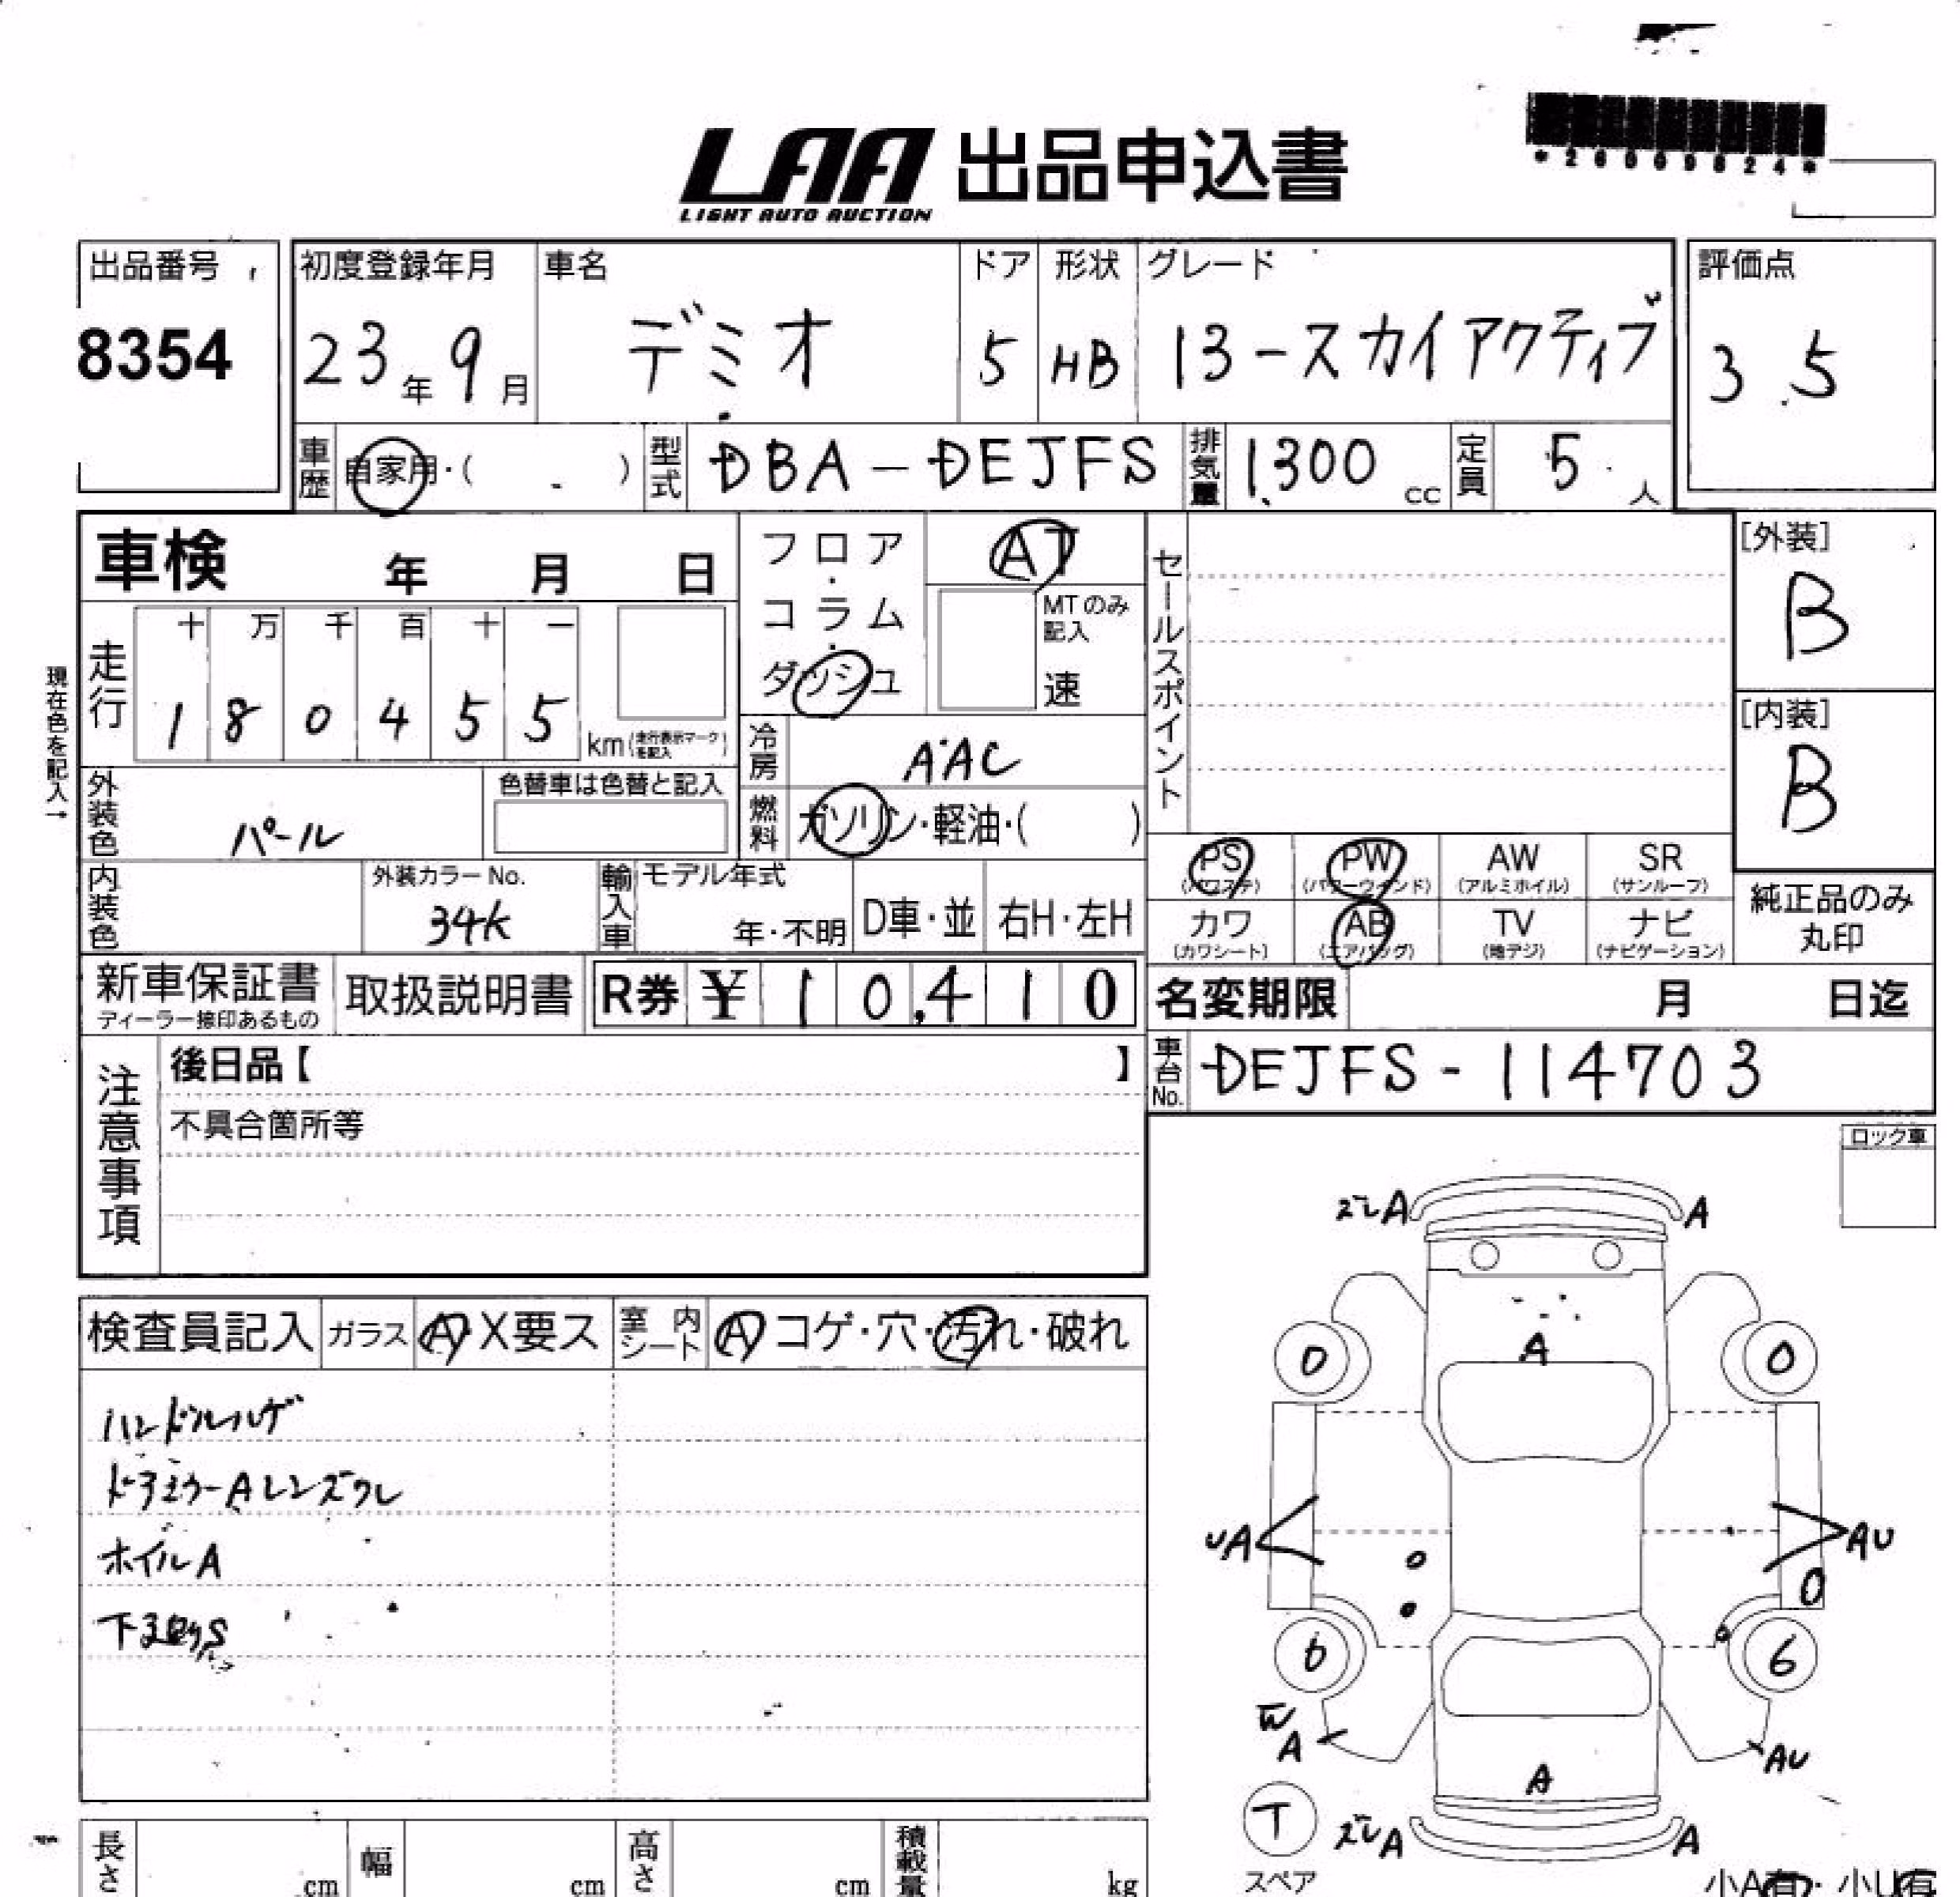 LAA 出品申込書
LIGHT AUTO AUCTION
出品番号
8354
初度登録年月
23年 9月
車名
デミオ
ドア
5
形状
HB
グレード
13-スカイアクティブ
評価点
3.5
車歴 自家用・( )
型式 DBA-DEJFS
排気量 1300 cc
定員 5 人
車検 年 月 日
現在色を記入→
走行
十 万 千 百 十 一
1 8 0 4 5 5
km(走行表示マークを記入)
フロア・コラム・ダッシュ
AT
MTのみ記入
速
冷房 AAC
燃料 ガソリン・軽油・( )
外装色 パール
色替車は色替と記入
内装色
外装カラーNo.
34K
輸入車
モデル年式
年・不明
D車・並
右H・左H
セールスポイント
[外装]
B
[内装]
B
PS (パワステ)
PW (パワーウィンド)
AW (アルミホイル)
SR (サンルーフ)
カワ (カワシート)
AB (エアバッグ)
TV (地デジ)
ナビ (ナビゲーション)
純正品のみ
丸印
新車保証書
ディーラー捺印あるもの
取扱説明書
R券 ¥10,410
名変期限 月 日迄
車台No. DEJFS-114703
注意事項
後日品【 】
不具合箇所等
ロック車
検査員記入
ガラス A・X要ス
室内シート A コゲ・穴・汚れ・破れ
ハンドルハゲ
ドアミラーAレンズワレ
ホイルA
下まわりS
ズレA
A
A
0
0
UA
AU
0
6
6
A
AU
A
T
スペア
ズレA
A
長さ cm
幅 cm
高さ cm
積載量 kg
小A有・小U有